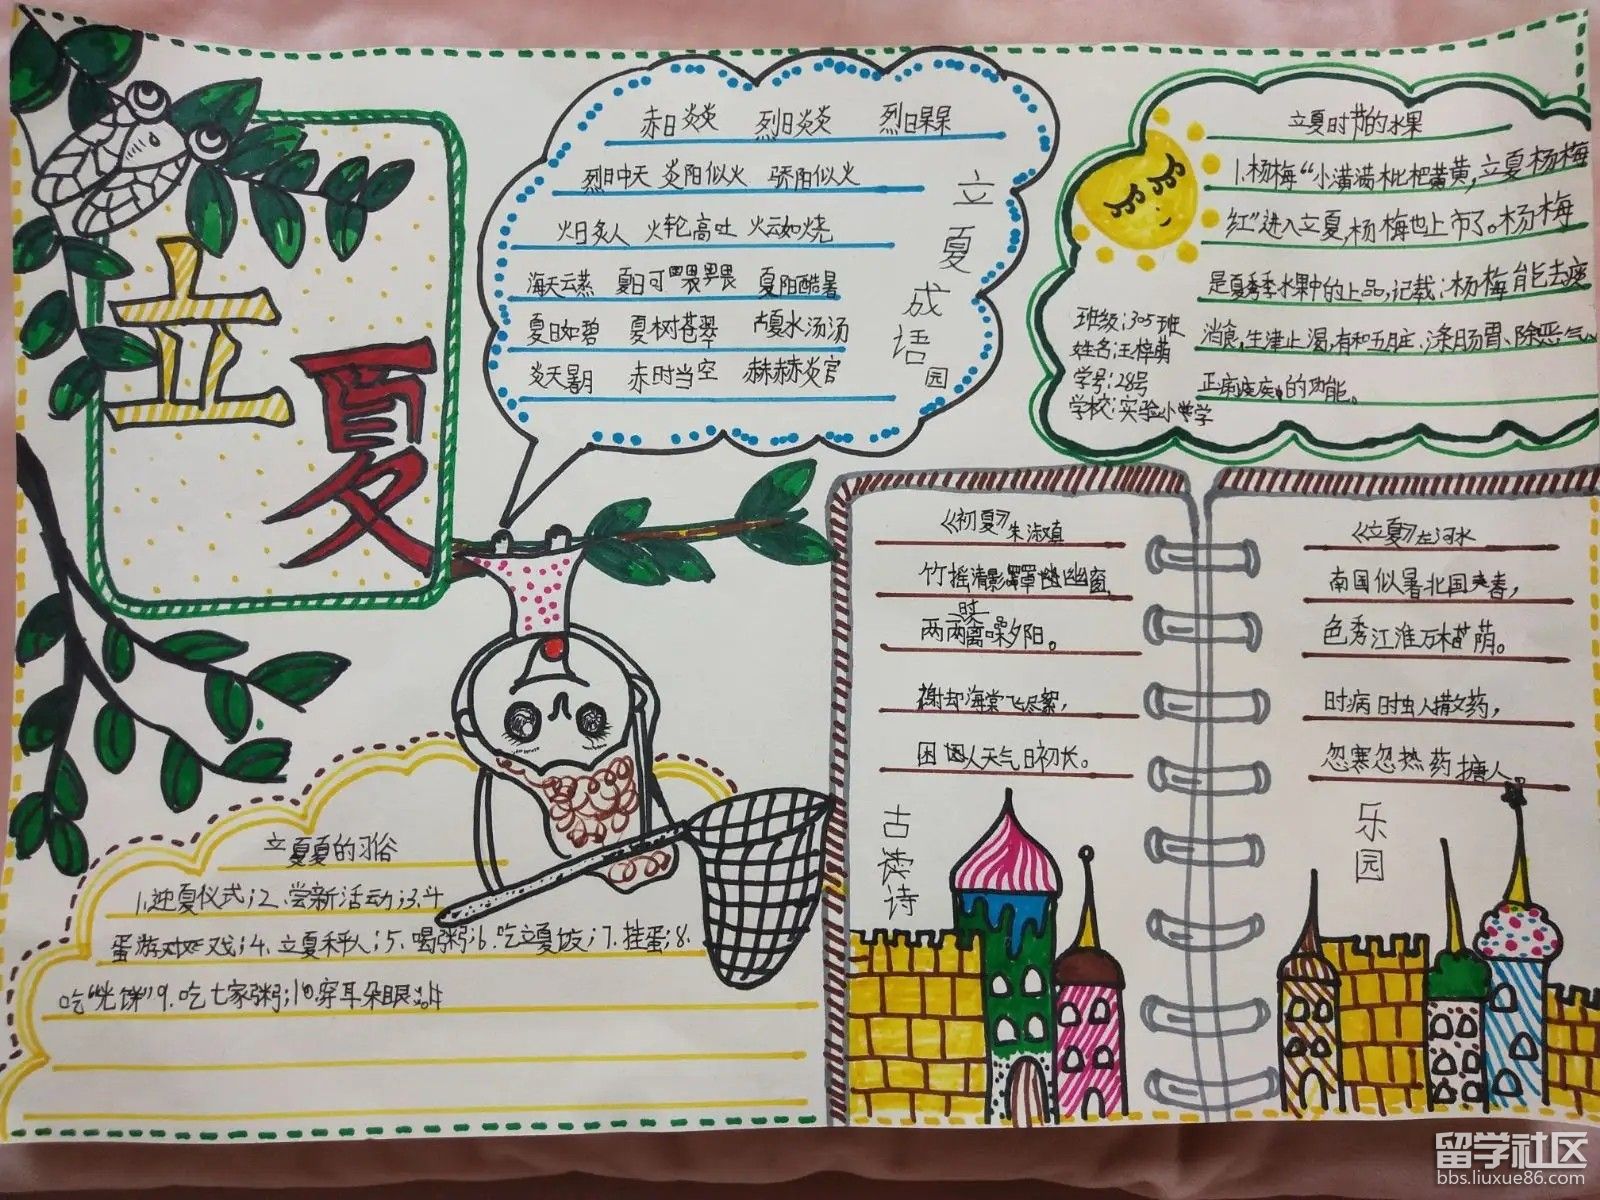 立
夏
赤日炎炎 烈日炎炎 烈日杲杲
烈日中天 炎阳似火 骄阳似火
火日炙人 火轮高吐 火云如烧
海天云蒸 夏日可畏 夏阳酷暑
夏日如碧 夏树苍翠 夏水汤汤
炎天暑月 赤时当空 赫赫炎官
立夏成语园
立夏时节的水果
1.杨梅“小满满枇杷黄,立夏杨梅
红”进入立夏,杨梅也上市了。杨梅
是夏季水果中的上品,记载:杨梅能去痰
消食,生津止渴,有和五脏、涤肠胃、除恶气
的功能。
班级:305班
姓名:王梓萌
学号:28号
学校:实验小学
《初夏》朱淑真
竹摇清影罩幽窗
两两时禽噪夕阳。
谢却海棠飞尽絮,
困人天气日初长。
古诗
《立夏》左河水
南国似暑北国春,
色秀江淮万木荫。
时病时虫人撒药,
忽寒忽热药搪人。
乐园
立夏的习俗
1.迎夏仪式;2.尝新活动;3.斗
蛋游戏;4.立夏秤人;5.喝粥;6.吃立夏饭;7.挂蛋;8.
吃“光饼”9.吃七家粥;10穿耳朵眼
留学社区
bbs.liuxue86.com